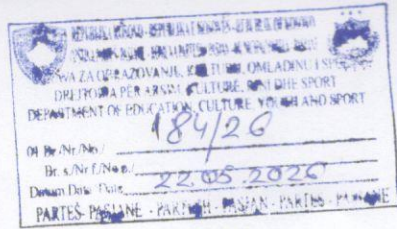 REPUBLIKA KOSOVO - REPUBLIKA E KOSOVËS - REPUBLIC OF KOSOVO
ZA OBRAZOVANJE, KULTURU, OMLADINU I SPORT
DREJTORIA PËR ARSIM, KULTURË, RINI DHE SPORT
DEPARTMENT OF EDUCATION, CULTURE, YOUTH AND SPORT
184/26
04 Br./Nr./No./
Br. s./Nr f./No p./
Datum/Data/Date 22.05.2026
PARTEŠ-PASJANE - PARTESH - PASJAN - PARTES - PASJANE